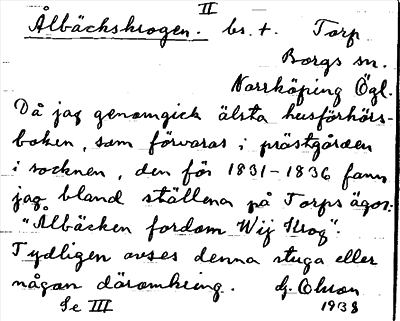 II
Ålbäckskrogen. bs. t. Torp
Borgs sn.
Norrköping Ögl.
Då jag genomgick älsta husförhörs-
boken, som förvaras i prästgården
i socknen, den för 1831-1836 fann
jag bland ställena på Torps ägor:
"Ålbäcken fordom Wij Krog".
Tydligen avses denna stuga eller
någon däromkring. G. Olson
Se III 1938